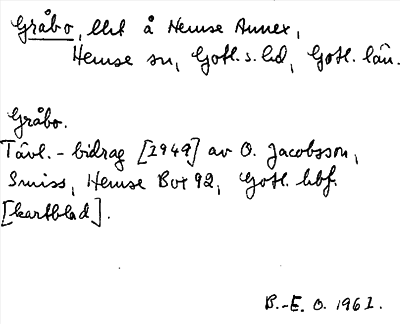 Gråbo, llht å Hemse Annex,
Hemse sn, Gotl. s. hd, Gotl. län.
Gråbo.
Tävl.-bidrag [1949] av O. Jacobsson,
Smiss, Hemse Box 92, Gotl. hbf.
[kartblad].
B.-E. O. 1961.